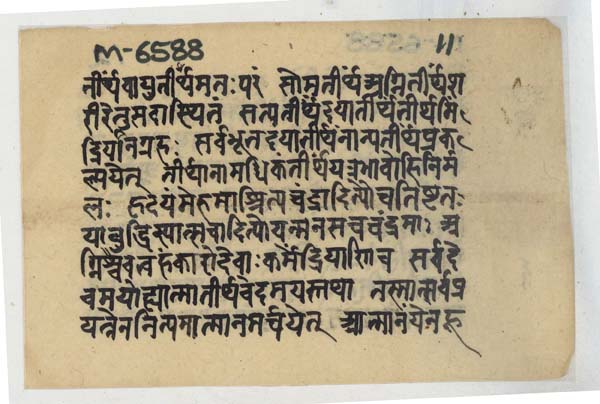 M-6588
11
तीर्थवायुतीर्थमतःपरं सोमतीर्थअग्नितीर्थश
रीरेतुसदास्थितं सत्यतीर्थंदयातीर्थंतीर्थमिं
द्रियनिग्रहः सर्वभूतदयातीर्थनान्यतीर्थप्रक
ल्पयेत् तीर्थानामधिकंतीर्थंयद्भावोहिनिर्म
लः हृदयंमेरुमाश्रित्यचंद्रादित्यौचतिष्टतः
याबुद्धिस्यात्सचादित्योयन्मनसचचंद्रमाः अ
ग्निश्चैव हंकारोदेवाःकर्मेंद्रियाणिच सर्वदे
वमयोह्यात्मातीर्थ तथा तस्मात्सर्वप्र
यत्नेननित्यमात्मानमर्चयेत् आत्मानंयेनह